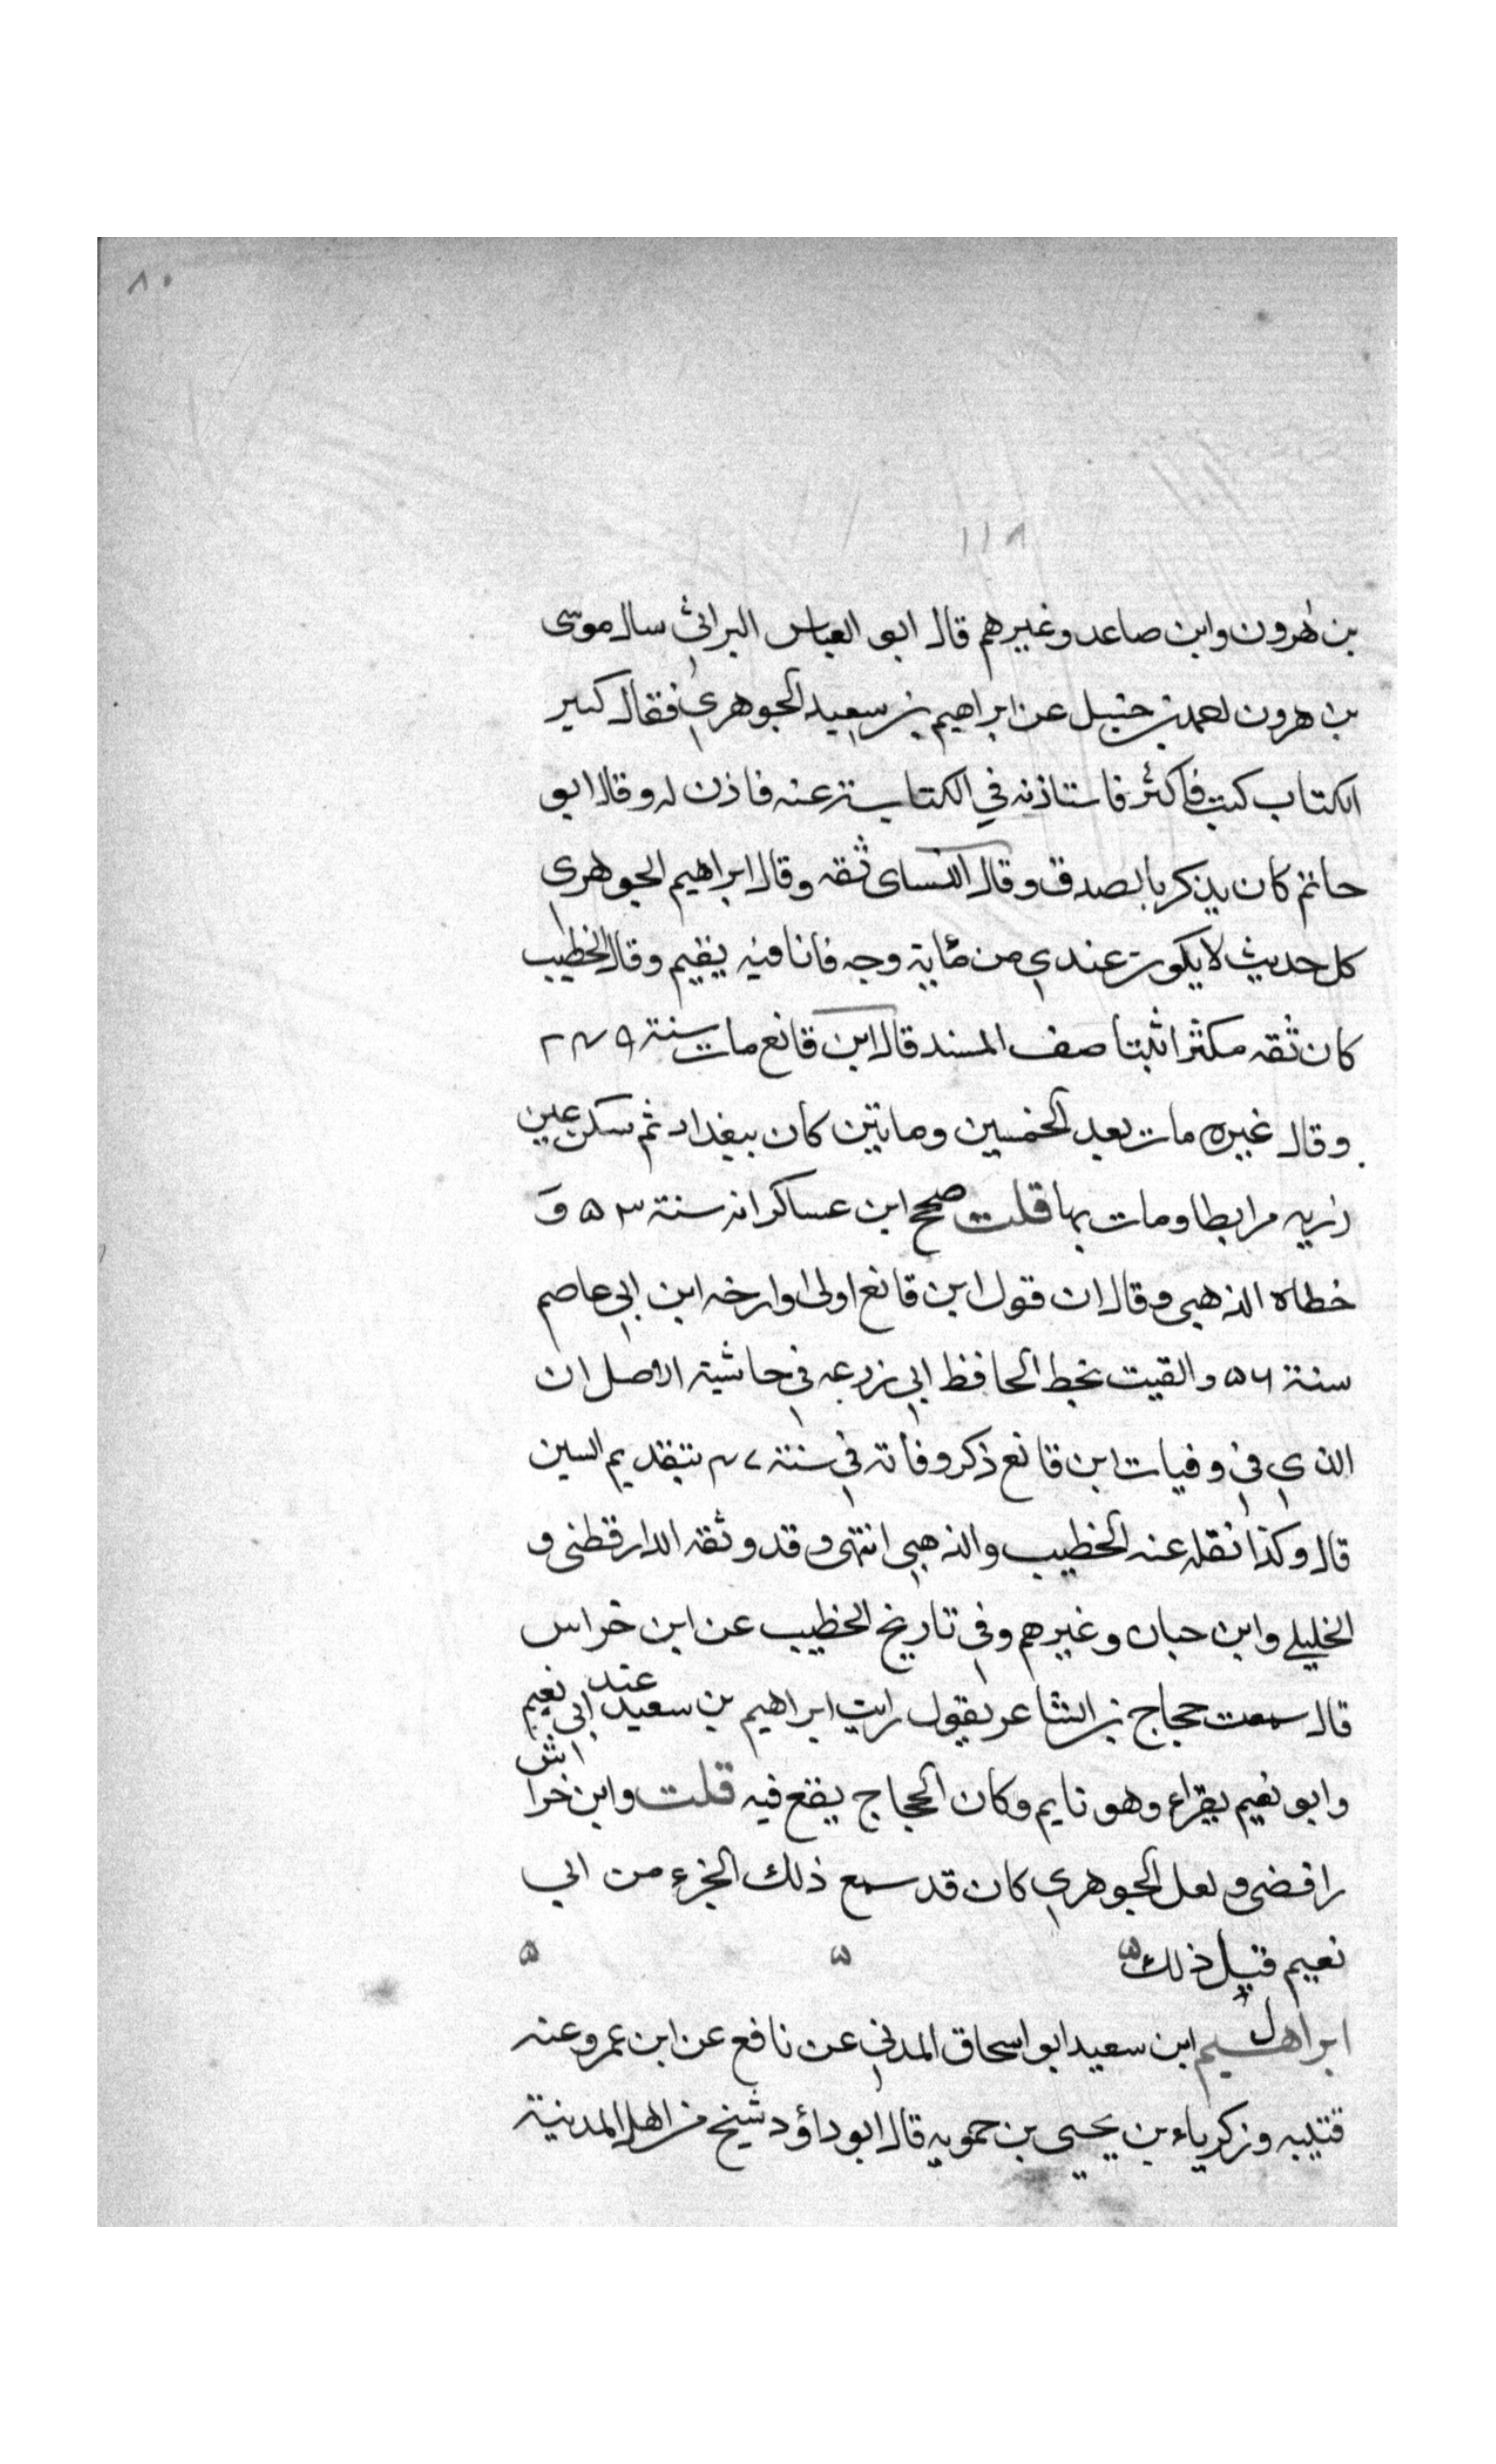 ٨٠
١١٨
بن هرون وابن صاعد وغيرهم قال ابو العباس البراثي سال موسى
بن هرون احمد بن حنبل عن ابراهيم بن سعيد الجوهري فقال كثير
الكتاب كتب فاكثر فاستاذنه في الكتابة عنه فاذن له وقال ابو
حاتم كان يذكر بالصدق وقال النساى ثقه وقال ابراهيم الجوهرى
كل حديث لا يكون عندي من مئاية وجه فانا فيه يتيم وقال الخطيب
كان ثقه مكثرا ثبتا صنف المسند قال ابن قانع مات سنة ٢٤٩
وقال غيره مات بعد الخمسين وماتين كان ببغداد ثم سكن عين
زربه مرابطا ومات بها قلت صحح ابن عساكر انه سنة ٥٣ وَ
خطاه الذهبى وقال ان قول ابن قانع اولى اوارخه ابن ابي عاصم
سنة ٥٦ والقيت بخط الحافظ ابي زرعه في حاشية الاصل ان
الذي في وفيات ابن قانع ذكر وفاته في سنة ٤٧ بتقديم السين
قال وكذا نقله عنه الخطيب والذهبي انتهى وقد وثقه الدارقطنى و
الخليلي وابن حبان وغيرهم وفي تاريخ الخطيب عن ابن خراس
قال سمعت حجاج بن الشاعر يقول رايت ابراهيم بن سعيد عند ابي نعيم
وابو نعيم يقراء وهو نايم وكان الحجاج يقع فيه قلت وابن خراش
رافضى ولعل الجوهري كان قد سمع ذلك الجزء من ابي
نعيم قبل ذلك ۵ ۵ ۵
ابراهيم ابن سعيد ابو اسحاق المدني عن نافع عن ابن عمر وعنه
قتيبه وزكرياء بن يحيى بن حمويه قال ابو داؤد شيخ من اهل المدينة